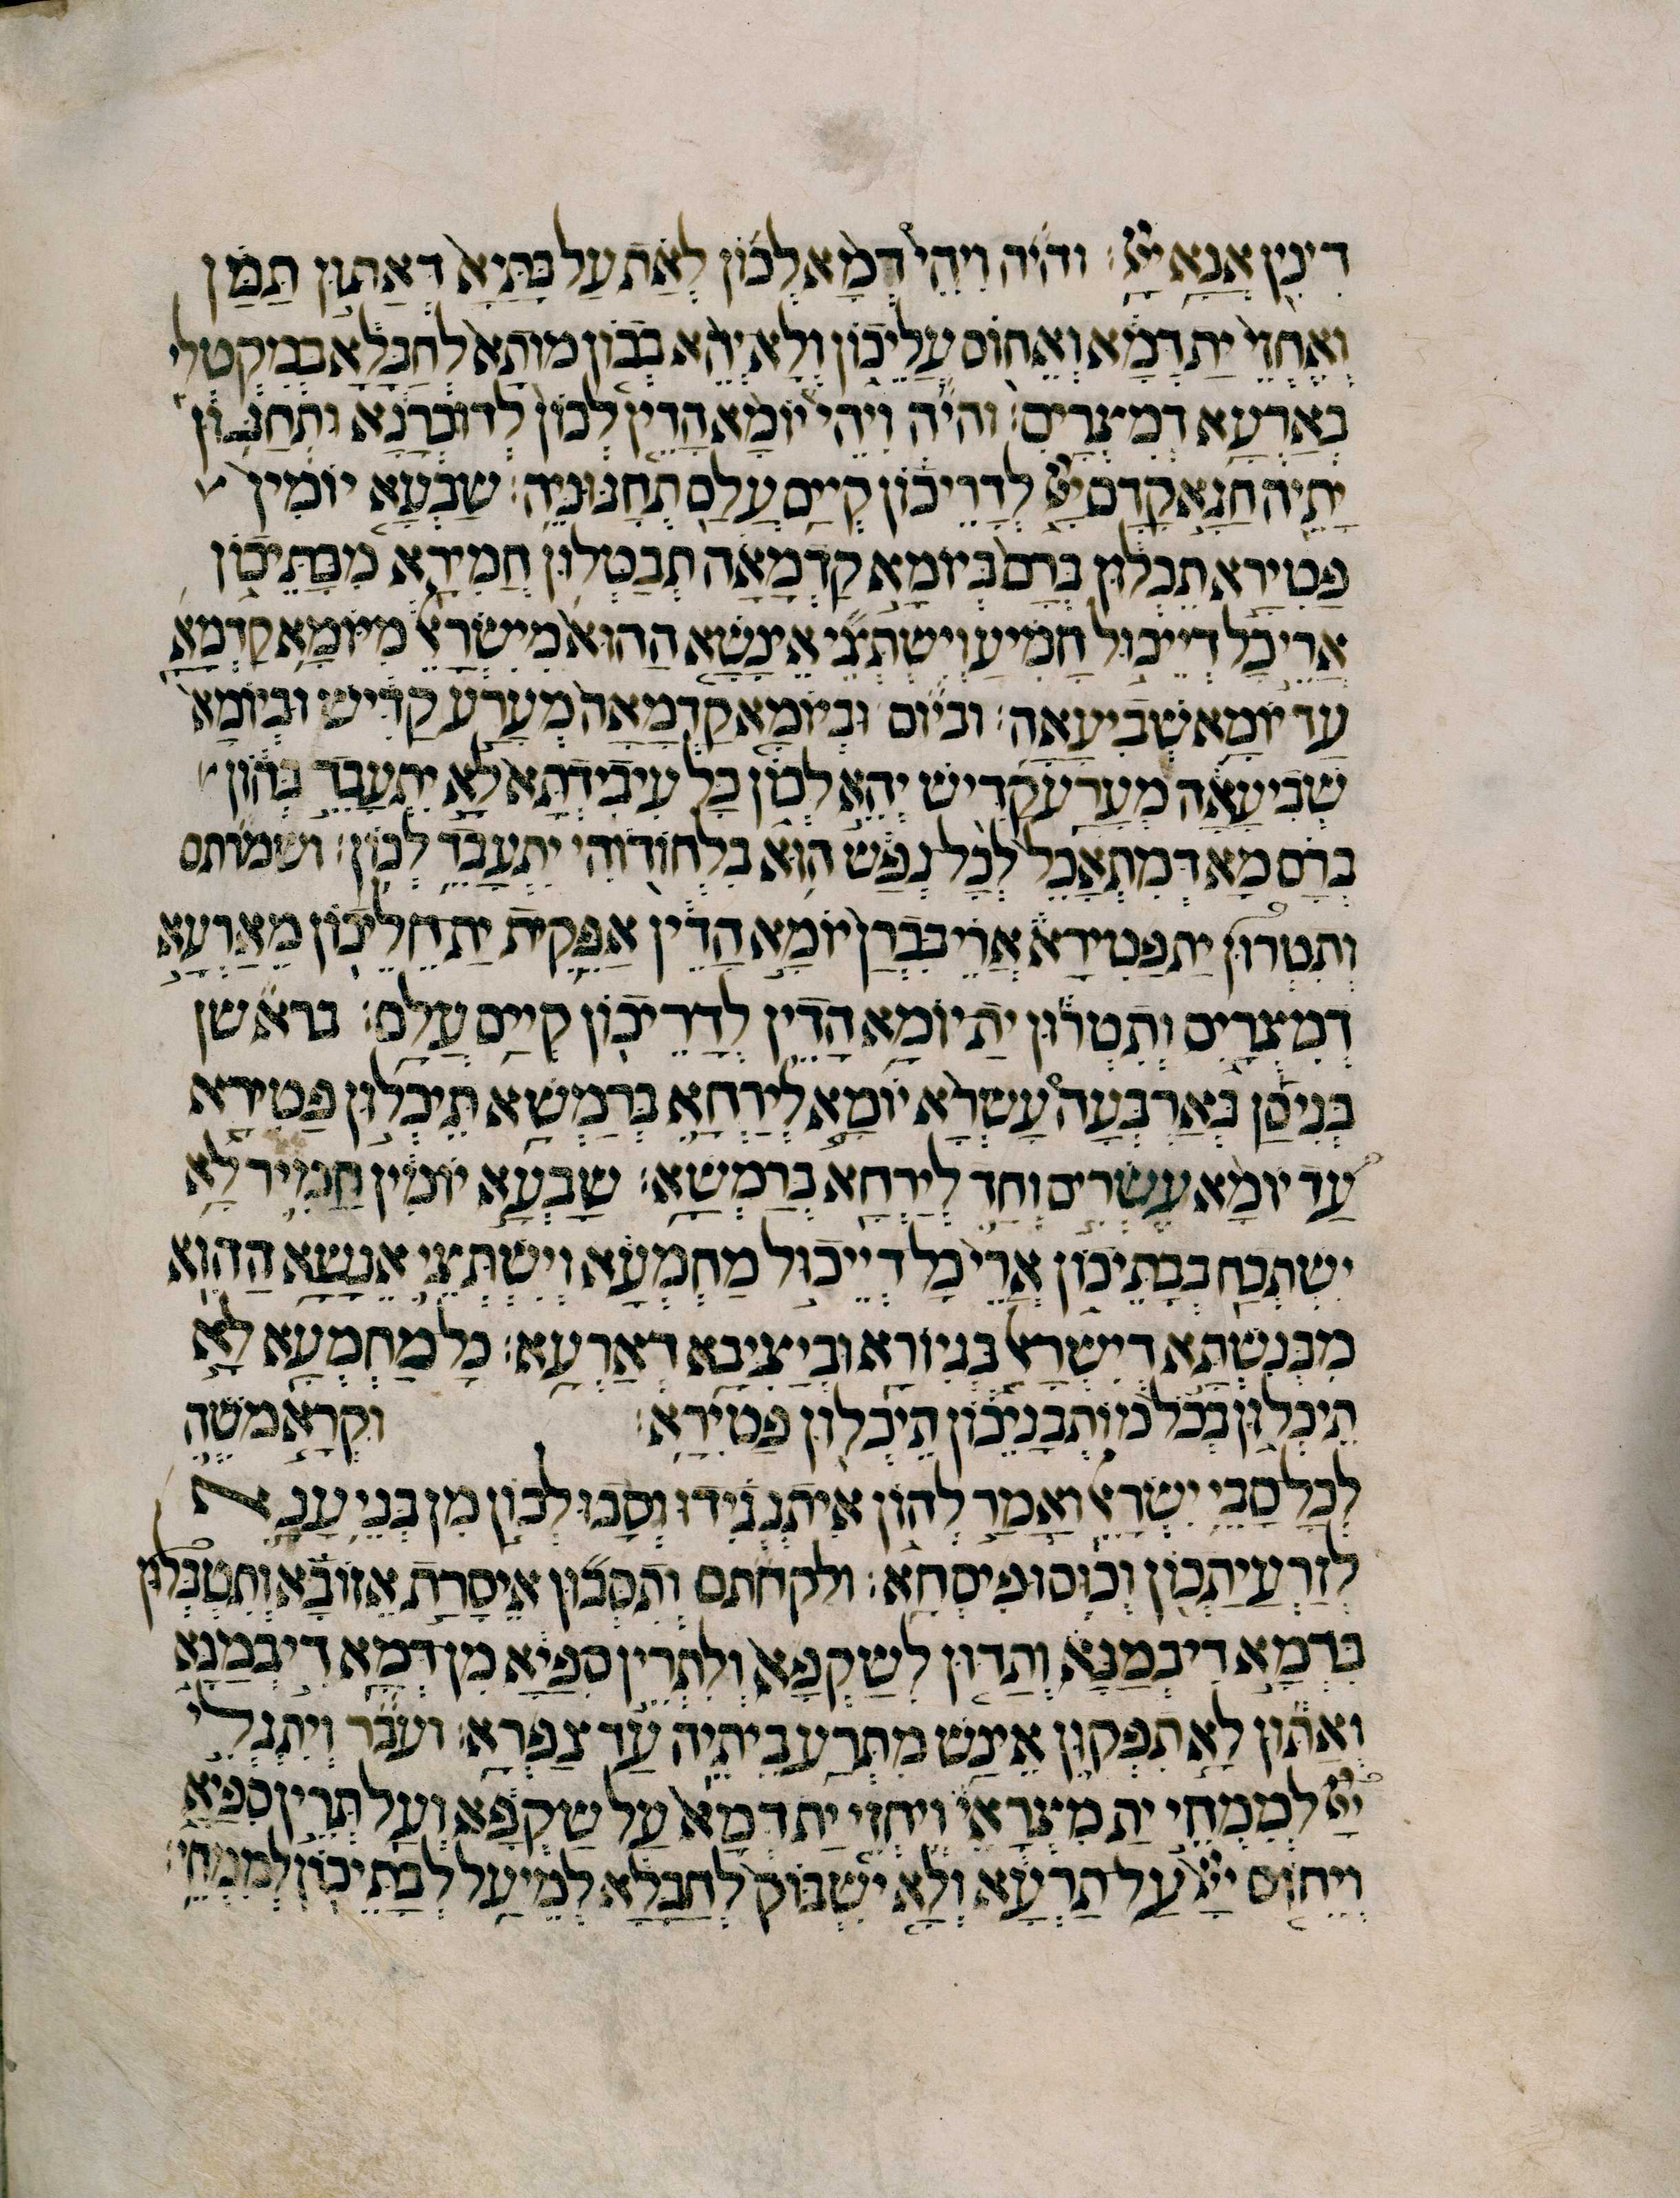 דִינִין אֲנָא יְיָ׃ והיה וִיהֵי דְמָא לְכוֹן לְאָת עַל בָּתַּיָּא דְּאַתּוּן תַּמָּן
וְאֶחֱזֵי יַת דְּמָא וְאֵחוֹס עֲלֵיכוֹן וְלָא יְהֵא בְכוֹן מוֹתָא לְחַבָּלָא בְּמִקְטְלִי
בְּאַרְעָא דְמִצְרָיִם׃ והיה וִיהֵי יוֹמָא הָדֵין לְכוֹן לְדוּכְרָנָא וּתְחַגּוּן
יָתֵיהּ חַגָּא קֳדָם יְיָ לְדָרֵיכוֹן קְיָם עָלַם תְּחַגּוּנֵּיהּ׃ שַׁבְעָא יוֹמִין
פַּטִּירָא תֵּכְלוּן בְּרַם בְּיוֹמָא קַדְמָאָה תְּבַטְּלוּן חֲמִירָא מִבָּתֵּיכוֹן
אֲרֵי כָּל דְּיֵיכוֹל חֲמִיעַ וְיִשְׁתֵּצֵי אֱינָשָׁא הַהוּא מִיִּשְׂרָאֵל מִיּוֹמָא קַדְמָאָ
עַד יוֹמָא שְׁבִיעָאָה׃ וביום וּבְיוֹמָא קַדְמָאָה מְעָרַע קַדִּישׁ וּבְיוֹמָא
שְׁבִיעָאָה מְעָרַע קַדִּישׁ יְהֵא לְכוֹן כָּל עִיבִידְתָּא לָא יִתְעֲבֵד בְּהוֹן
בְּרַם מָא דְּמִתְאֲכֵל לְכָל נְפַשׁ הוּא בִלְחוֹדוֹהִי יִתְעֲבֵד לְכוֹן׃ ושמרתם
וְתִטְּרוּן יַת פַּטִּירָא אֲרֵי בִּכְרַן יוֹמָא הָדֵין אַפֵּקִית יַת חֵלֵיכוֹן מֵאַרְעָא
דְמִצְרָיִם וְתִטְּרוּן יַת יוֹמָא הָדֵין לְדָרֵיכוֹן קְיָם עָלַם׃ בראשן
בְּנִיסָן בְּאַרְבְּעָה עַסְרָא יוֹמָא לְיַרְחָא בְּרַמְשָׁא תֵּיכְלוּן פַּטִּירָא
עַד יוֹמָא עֶשְׂרִים וְחַד לְיַרְחָא בְּרַמְשָׁא׃ שַׁבְעָא יוֹמִין חֲמִיר לָא
יִשְׁתְּכַח בְּבָתֵּיכוֹן אֲרֵי כָּל דְּיֵיכוֹל מַחְמְעָא וְיִשְׁתֵּצֵי אֱנָשָׁא הַהוּא
מִכְּנִשְׁתָּא דְיִשְׂרָאֵל בְּגִיּוֹרָא וּבְיַצִּיבָא דְאַרְעָא׃ כָּל מַחְמְעָא לָא
תֵיכְלוּן בְּכֹל מוֹתְבָנֵיכוֹן תֵּיכְלוּן פַּטִּירָא׃ וּקְרָא מֹשֶׁה
לְכָל סָבֵי יִשְׂרָאֵל וַאֲמַר לְהוֹן אִיתְנְגִידוּ וְסַבוּ לְכוֹן מִן בְּנֵי עָנָא
לְזַרְעֲיָתְכוֹן וְכוּסוּ פִיסְחָא׃ ולקחתם וְתִסְּבוּן אֵיסָרַת אֵזוֹבָא וְתִטְבְּלוּן
בִּדְמָא דִיבְמָנָּא וְתַדּוּן לְשַׁקְפָא וְלִתְרֵין סִפַּיָּא מִן דְּמָא דִיבְמָנָּא
וְאַתּוּן לָא תִפְּקוּן אֱינַשׁ מִתְּרַע בֵּיתֵיהּ עַד צַפְרָא׃ ועבר וְיִתְגְּלֵי
יְיָ לְמִמְחֵי יַת מִצְרָאֵי וְיֶחֱזֵי יַת דְּמָא עַל שָׁקְפָא וְעַל תְּרֵין סִפַּיָּא
וְיֵחוֹס יְיָ עַל תַּרְעָא וְלָא יִשְׁבּוֹק לְחַבָּלָא לְמֵיעַל לְבָתֵּיכוֹן לְמִמְחֵי׃